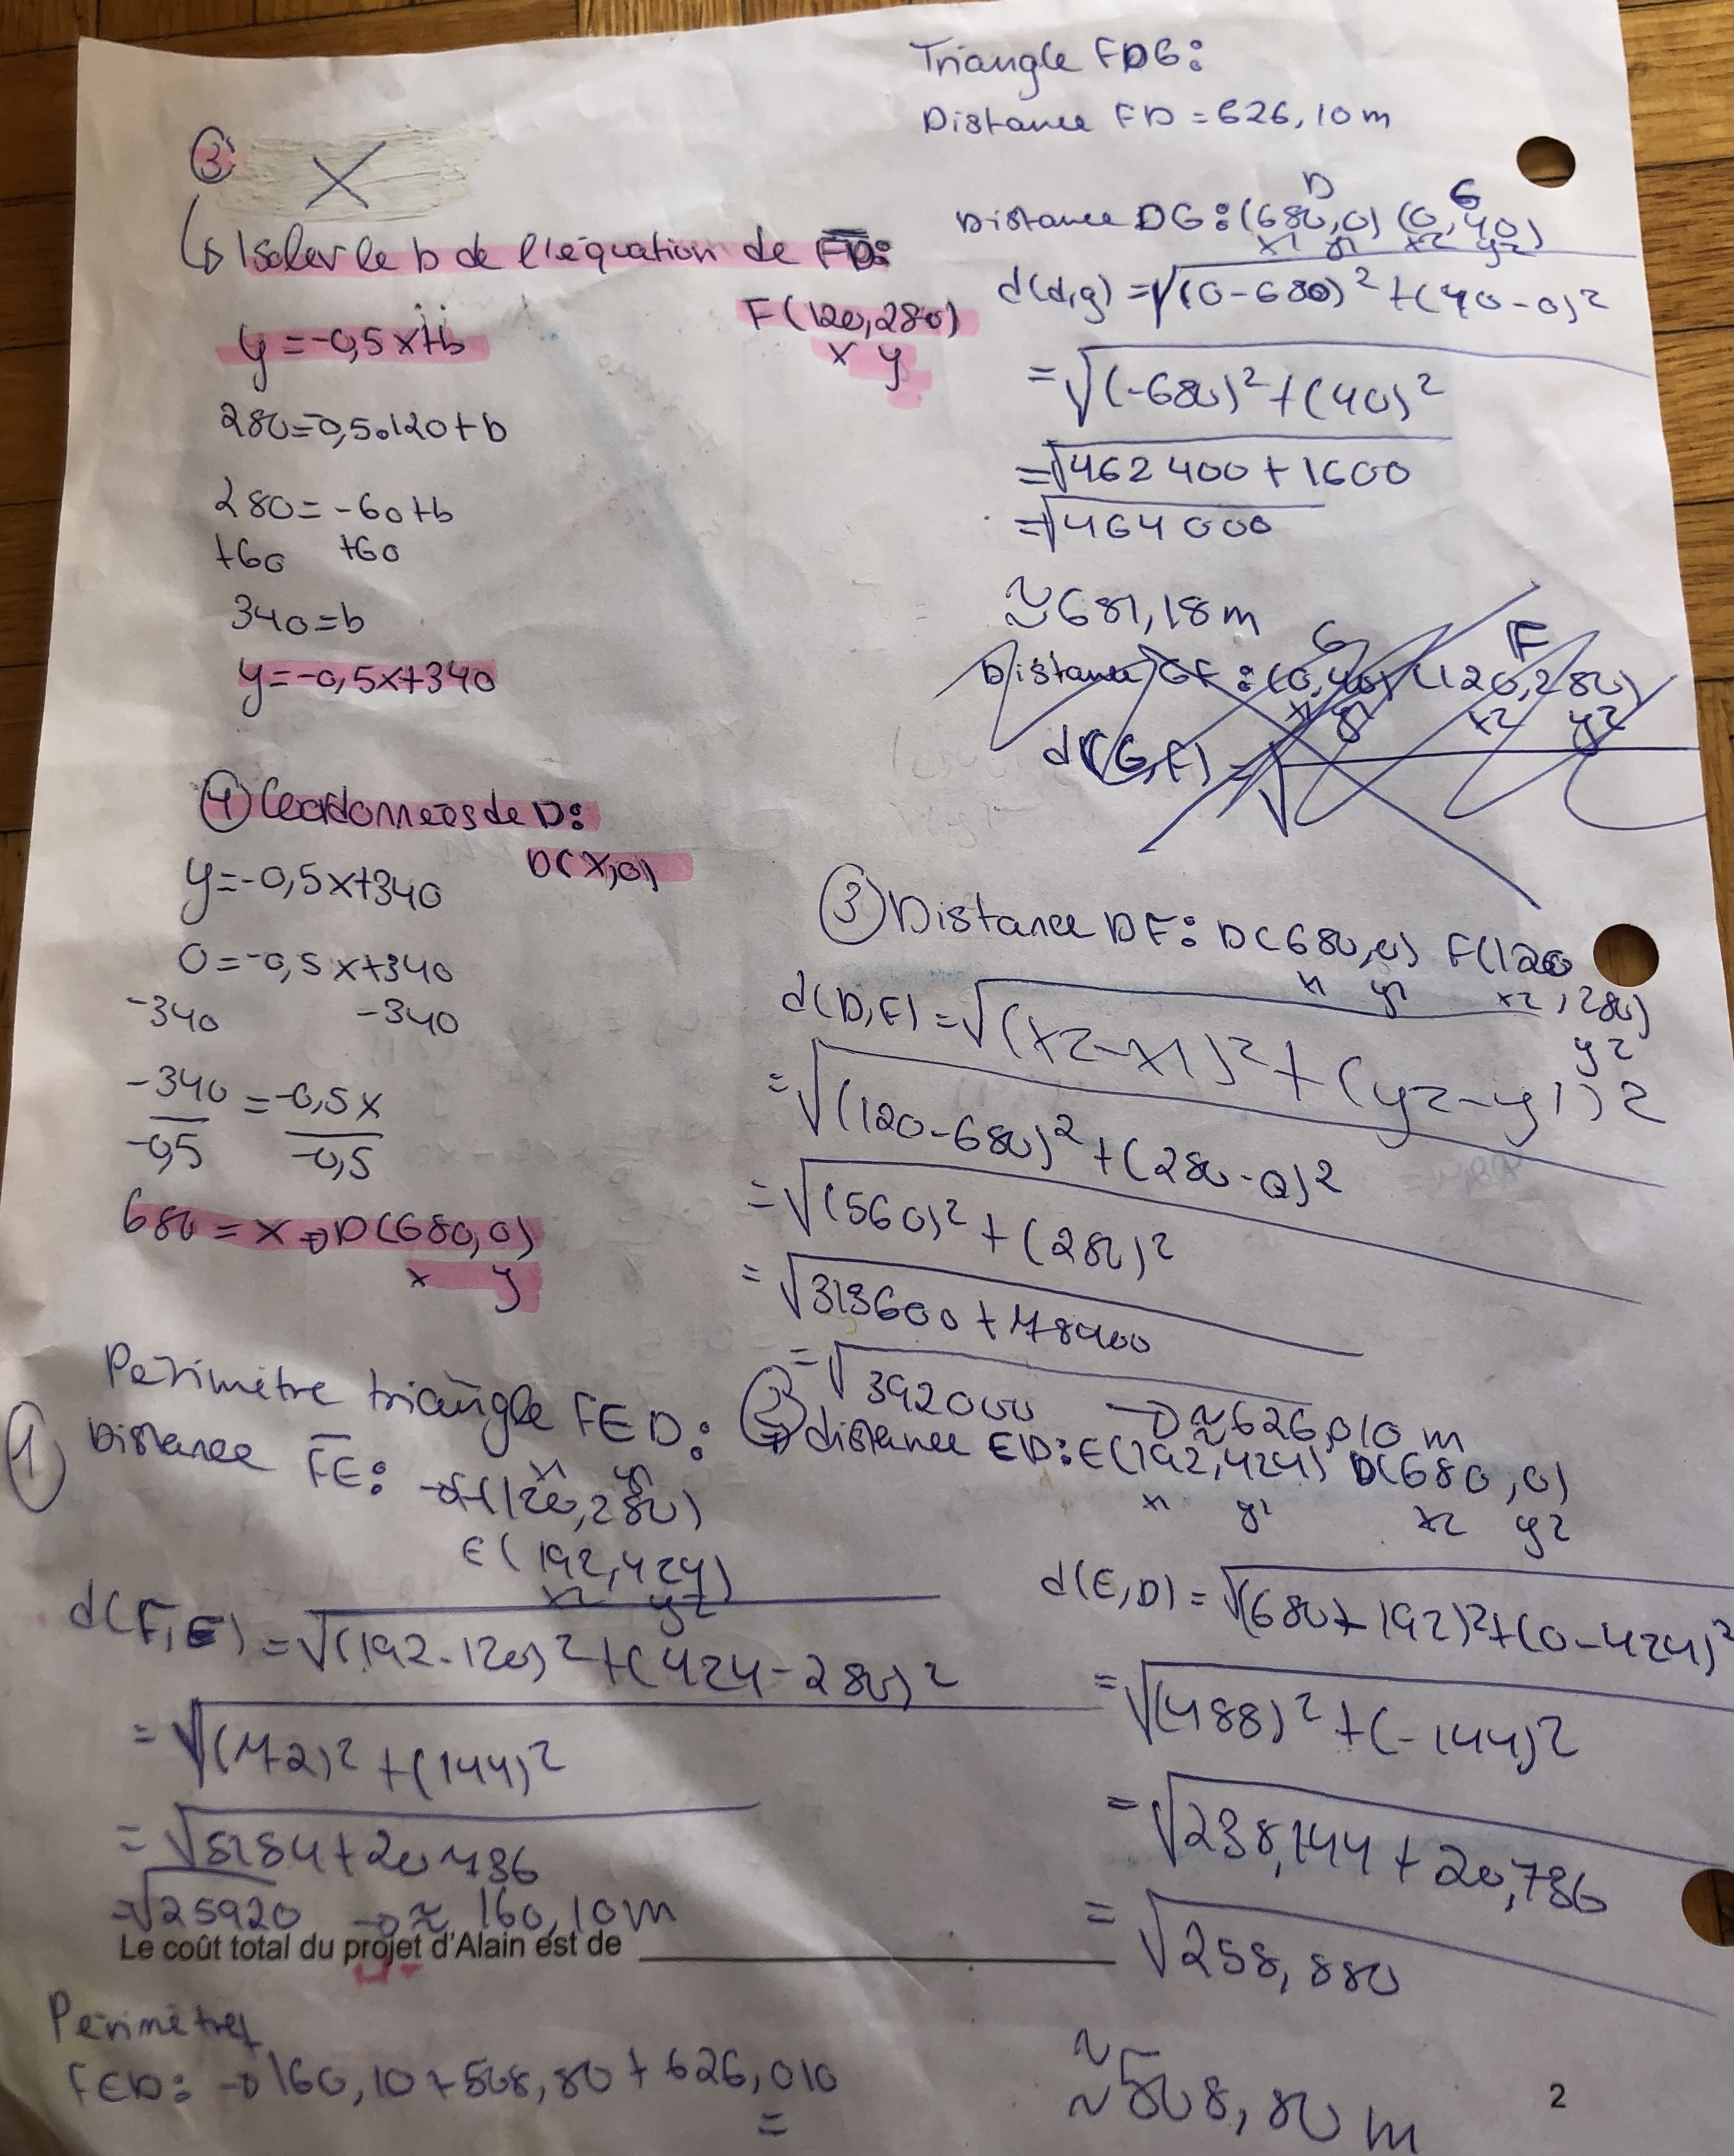 ③
↳ Isoler le b de l'équation de F̅D̅:
y = -0,5x+b
F(120,280)
x y
280=-0,5•120+b
280= -60+b
+60 +60
340=b
y=-0,5x+340
④ Coordonnées de D:
D(x,0)
y=-0,5x+340
0=-0,5x+340
-340 -340
-340/-0,5 = -0,5x/-0,5
680 = x → D(680,0)
x y
Triangle FDG:
Distance FD = 626,10 m
D G
Distance DG: (680,0) (0,40)
x1 y1 x2 y2
d(d,g) = √(0-680)² + (40-0)²
= √(-680)² + (40)²
= √462 400 + 1600
= √464 000
≈ 681,18 m
G F
Distance GF: (0,40) (120,280)
x1 y1 x2 y2
d(G,F) = √
③ Distance DF: D(680,0) F(120
x1 y1 x2 ,280)
y2
d(D,F) = √(x2-x1)² + (y2-y1)2
= √(120-680)² + (280-0)2
= √(560)² + (280)²
= √313600 + 78400
= √392000 → ≈ 626,010 m
Périmètre triangle FED:
① Distance F̅E̅:
x1 y1
→ F(120,280)
E(192,424)
x2 y2
d(F,E) = √(192-120)² + (424-280)²
= √(72)² + (144)²
= √5184 + 20736
= √25920 → ≈ 160,10m
② ↳ distance ED: E(192,424) D(680,0)
x1 y1 x2 y2
d(E,D) = √(680-192)² + (0-424)²
= √(488)² + (-144)2
= √238,144 + 20,736
= √258,880
≈ 508,80 m
Le coût total du projet d'Alain est de
Périmètre
FED: → 160,10 + 508,80 + 626,010
=
2